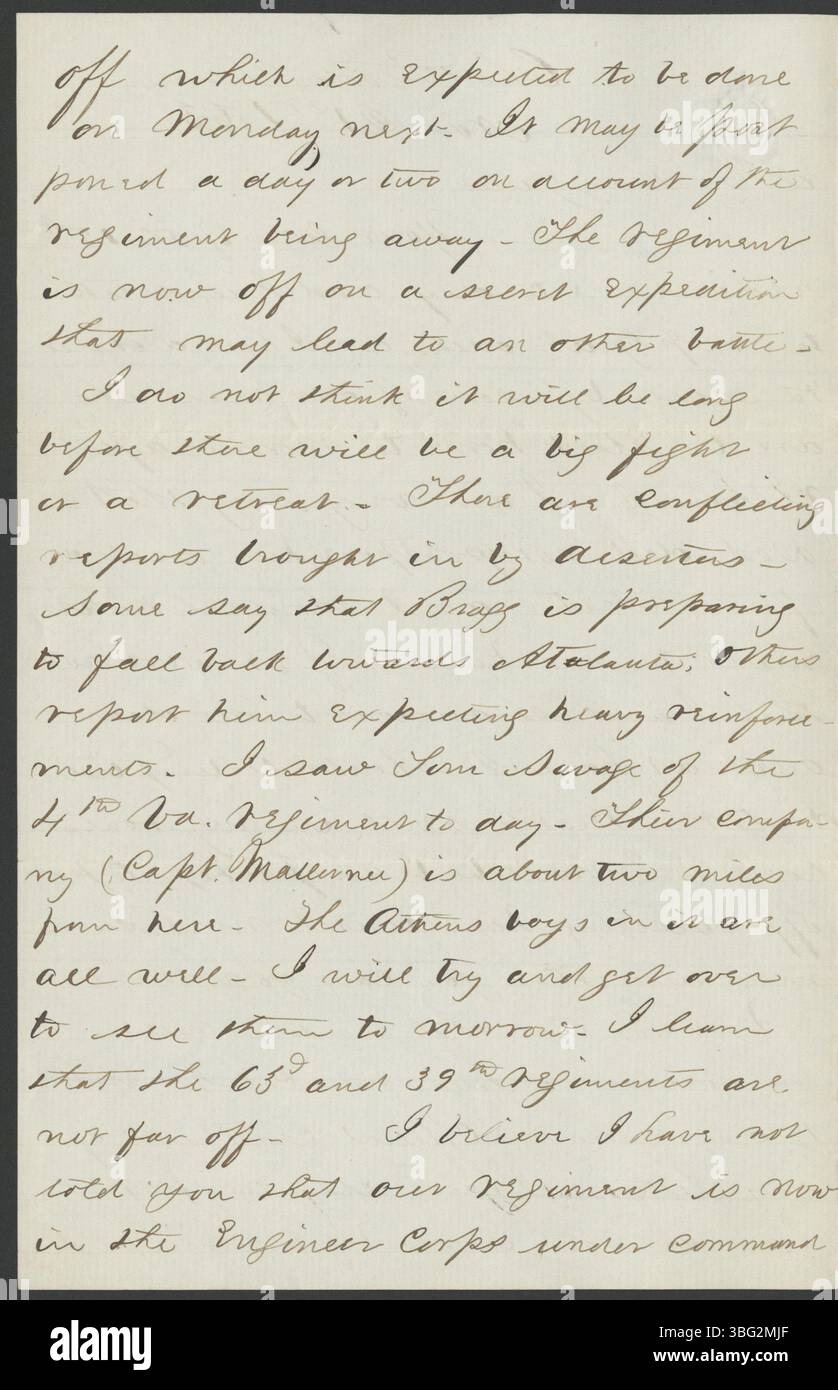 off which is expected to be done
on Monday next. It may be post
poned a day or two on account of the
regiment being away - The regiment
is now off on a secret expedition
that may lead to an other battle -
I do not think it will be long
before there will be a big fight
or a retreat - There are conflicting
reports brought in by deserters -
Some say that Bragg is preparing
to fall back towards Atalanta; others
report him expecting heavy reinforce-
ments. I saw Tom Savage of the
4th Va. regiment to day - Their compa-
ny (Capt. ) is about two miles
from here - The Athens boys in it are
all well - I will try and get over
to see them to morrow - I learn
that the 63d and 39th regiments are
not far off - I believe I have not
told you that our regiment is now
in the Engineer Corps under command
alamy
Image ID: 3BG2MJF
www.alamy.com